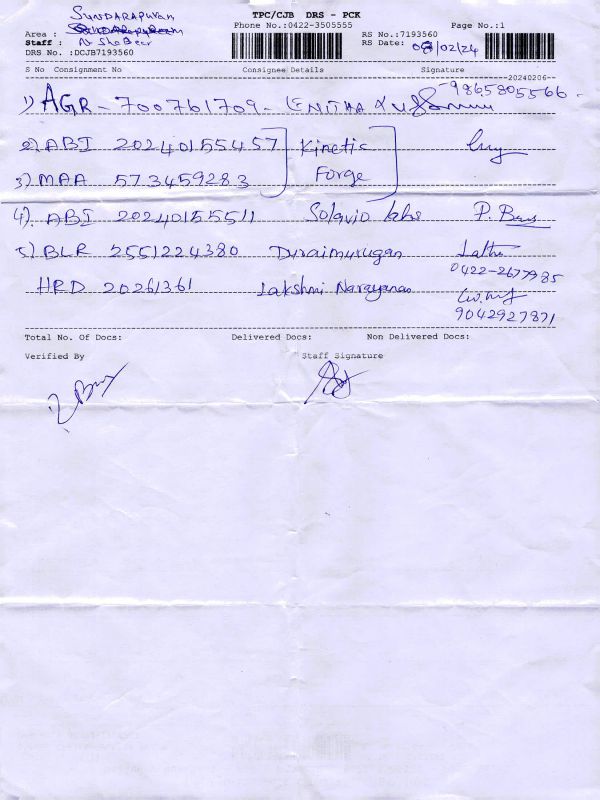 SUNDARAPURAM
TPC/CJB DRS - PCK
Phone No.:0422-3505555
Page No.:1
Area :
Staff : N. ShaBeer
DRS No. :DCJB7193560
RS No.:7193560
RS Date: 08/02/24
S No Consignment No Consignee Details Signature
20240206
9865805566
1) AGR - 700761709 -
2) ABI 20240155457 Kinetic
3) MAA 573459283 Forge
4) ABI 20240155511 Solavio labs
5) BLR 2551224380 Duraimurugan Latha
0422-2677985
HRD 20261361 Lakshmi Narayanan
9042927871
Total No. Of Docs: Delivered Docs: Non Delivered Docs:
Verified By Staff Signature